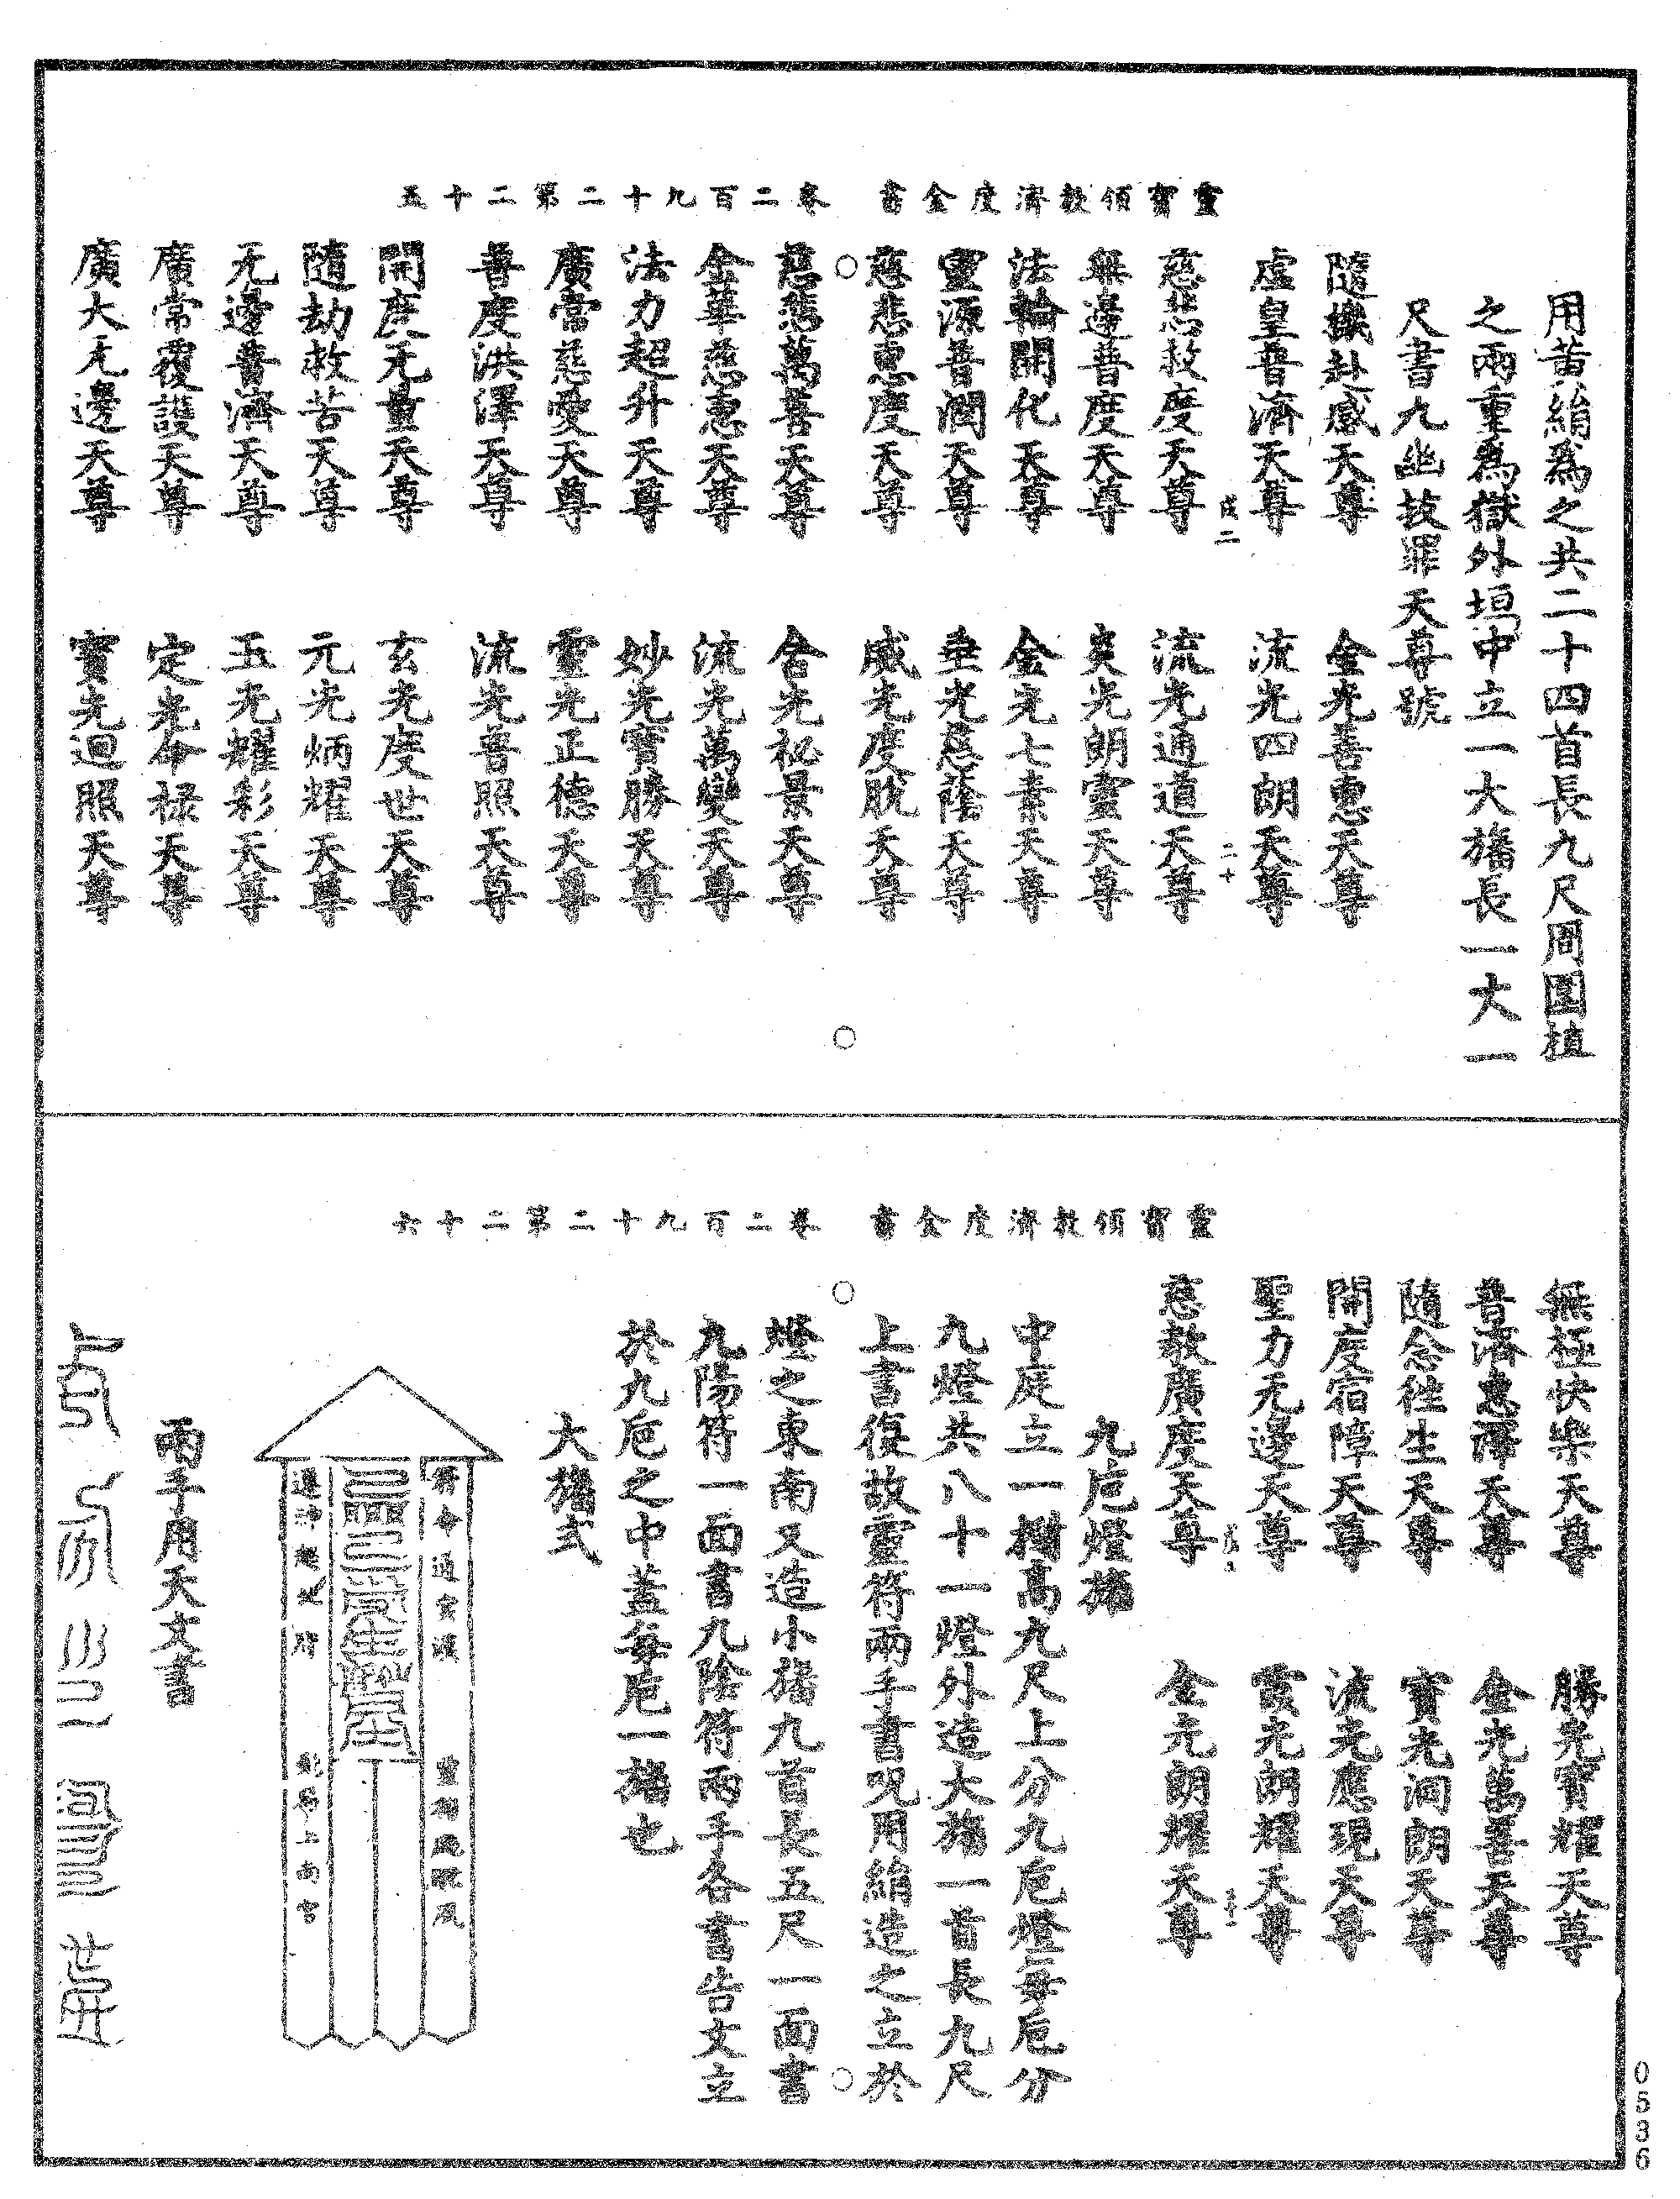 靈寶領教濟度金書　卷二百九十二第二十五
用黃絹爲之共二十四首長九尺周圍植
之兩重爲獄外垣中立一大旛長一丈一
尺書九幽拔罪天尊號
隨機赴感天尊　金光善惠天尊
虛皇普濟天尊　流光四朗天尊
二　二十
慈悲救度天尊　流光通道天尊
無邊普度天尊　炎光朗靈天尊
法輪開化天尊　金光七素天尊
靈源普潤天尊　垂光慈蔭天尊
慈悲惠度天尊　威光度脫天尊
慈悲萬善天尊　含光祕景天尊
金華慈惠天尊　流光萬變天尊
法力超升天尊　妙光寶勝天尊
廣當慈愛天尊　靈光正德天尊
普度洪澤天尊　流光普照天尊
開度无量天尊　玄光度世天尊
隨劫救苦天尊　元光炳耀天尊
无邊普濟天尊　玉光耀彩天尊
廣常覆護天尊　定光命祿天尊
廣大无邊天尊　寶光迴照天尊
靈寶領教濟度金書　卷二百九十二第二十六
無極快樂天尊　勝光寶耀天尊
普濟惠澤天尊　金光萬善天尊
隨念往生天尊　寶光洞朗天尊
開度宿障天尊　流光應現天尊
聖力无邊天尊　霞光朗耀天尊
慈教廣度天尊　金光朗耀天尊
九巵燈旛
中庭立一棚高九尺上分九巵燈每巵分
九燈共八十一燈外造大旛一首長九尺
上書復故靈符兩手書呪用絹造之立於
燈之東南又造小旛九首長五尺一面書
九陽符一面書九陰符兩手各書告文立
於九巵之中蓋每巵一旛也
大旛式
符命通霄漢　靈旛颺曉風
北帝上南宮
兩手用天文書
0536